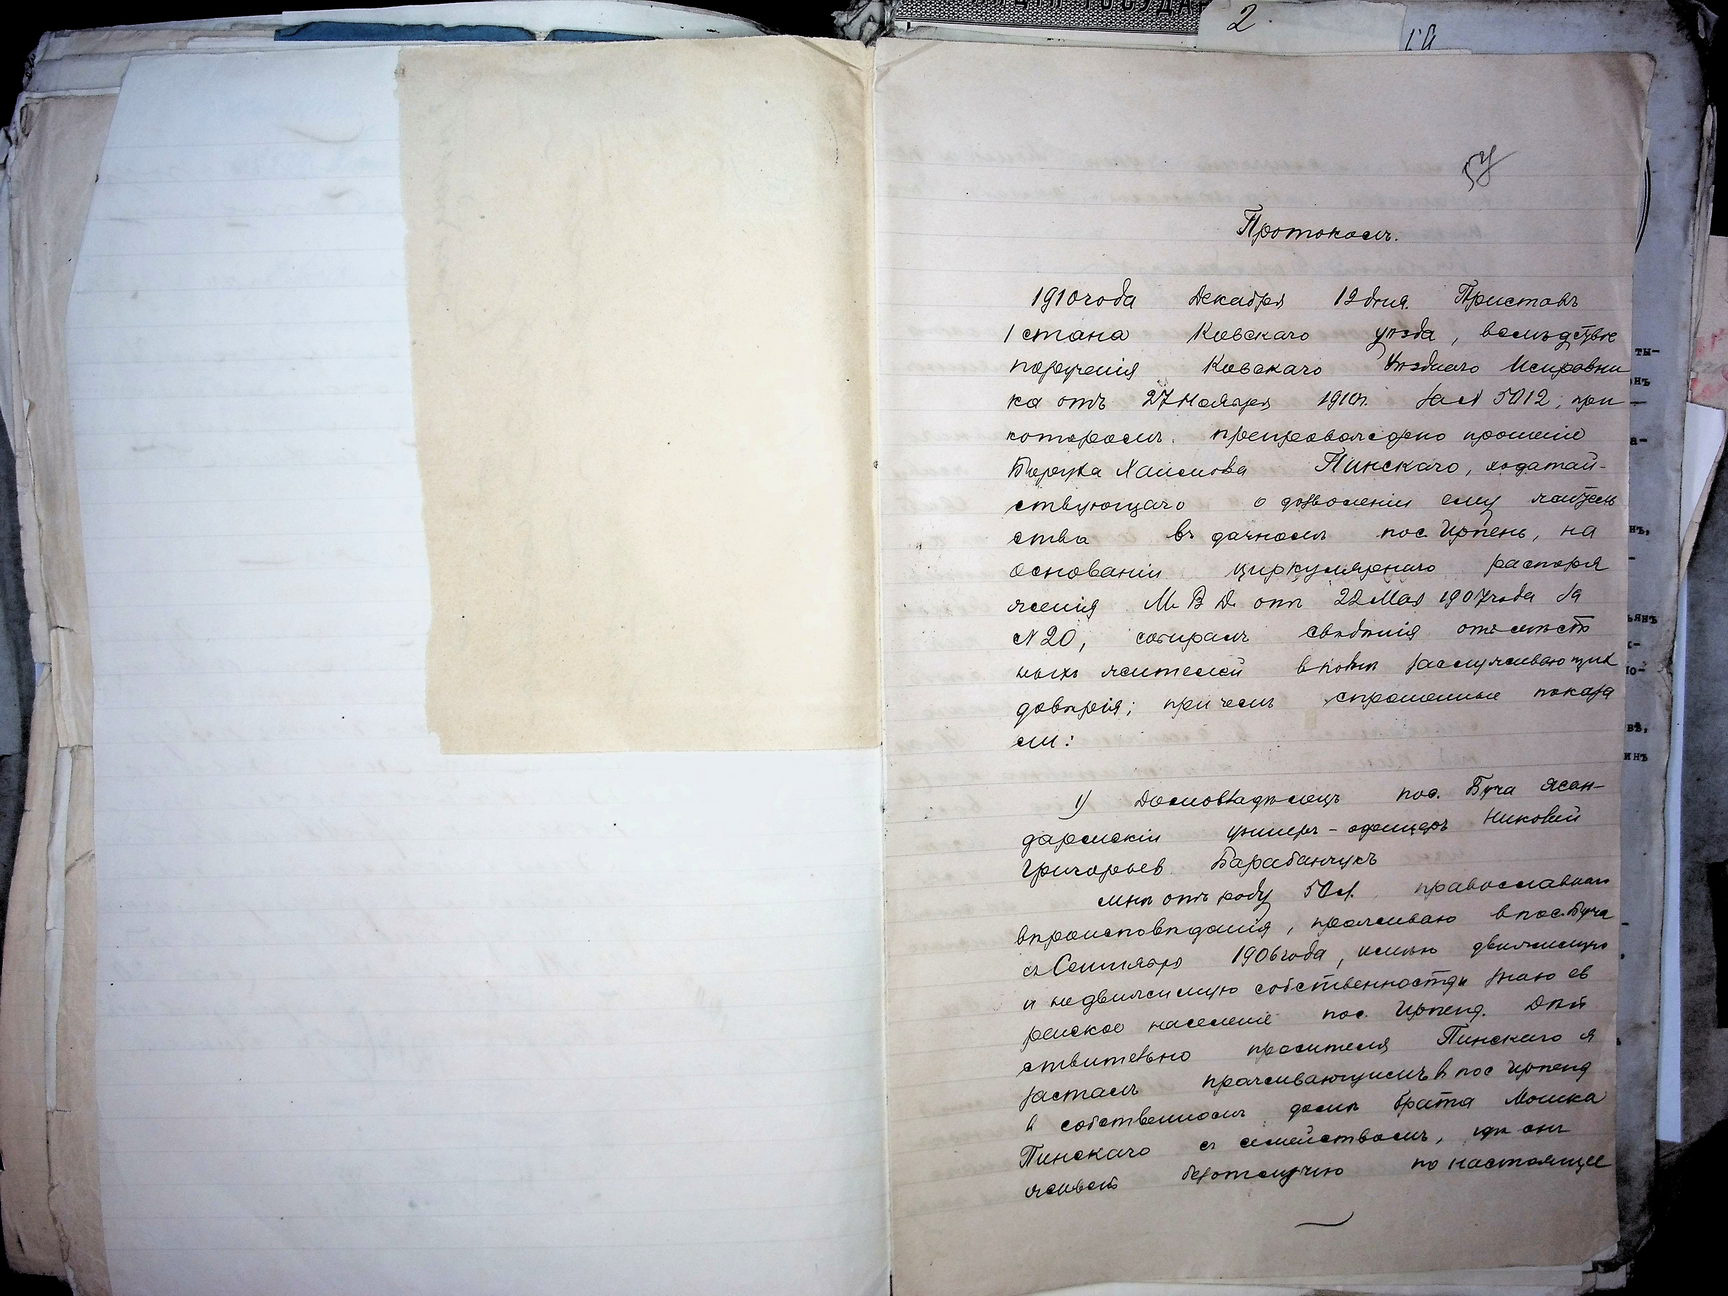 2
57
Протоколъ.
1910 года Декабря 12 дня. Приставъ
1 стана Кіевскаго уѣзда, вслѣдствіе
порученія Кіевскаго Уѣзднаго Исправни
ка отъ 27 Ноября 1910 г. за № 5012, при
которомъ препровождено прошеніе
Боруха Хаимова Пинскаго, ходатай-
ствующаго о дозволеніи ему житель
ства въ дачномъ пос. Ирпень, на
основаніи циркулярнаго распоря
женія М. В Д. отъ 22 Мая 1907 года за
№ 20, собиралъ свѣдѣнія отъ мѣст
ныхъ жителей вполнѣ заслуживающихъ
довѣрія; при чемъ спрошенные показа
ли:
1) Домовладѣлецъ пос. Буча жан-
дармскій унтеръ-офицеръ
Григорьев Барабанчукъ
мнѣ отъ роду 50 л. православнаго
вѣроисповѣданія, проживаю в пос. Буча
съ Сентября 1906 года, имѣю движимую
и недвижимую собственность знаю ев
рейское населеніе пос. Ирпень. Дѣй
ствительно просителя Пинскаго я
засталъ проживающимъ в пос Ирпень
в собственномъ домѣ брата Мошка
Пинскаго съ семействомъ, гдѣ онъ
живетъ безотлучно по настоящее